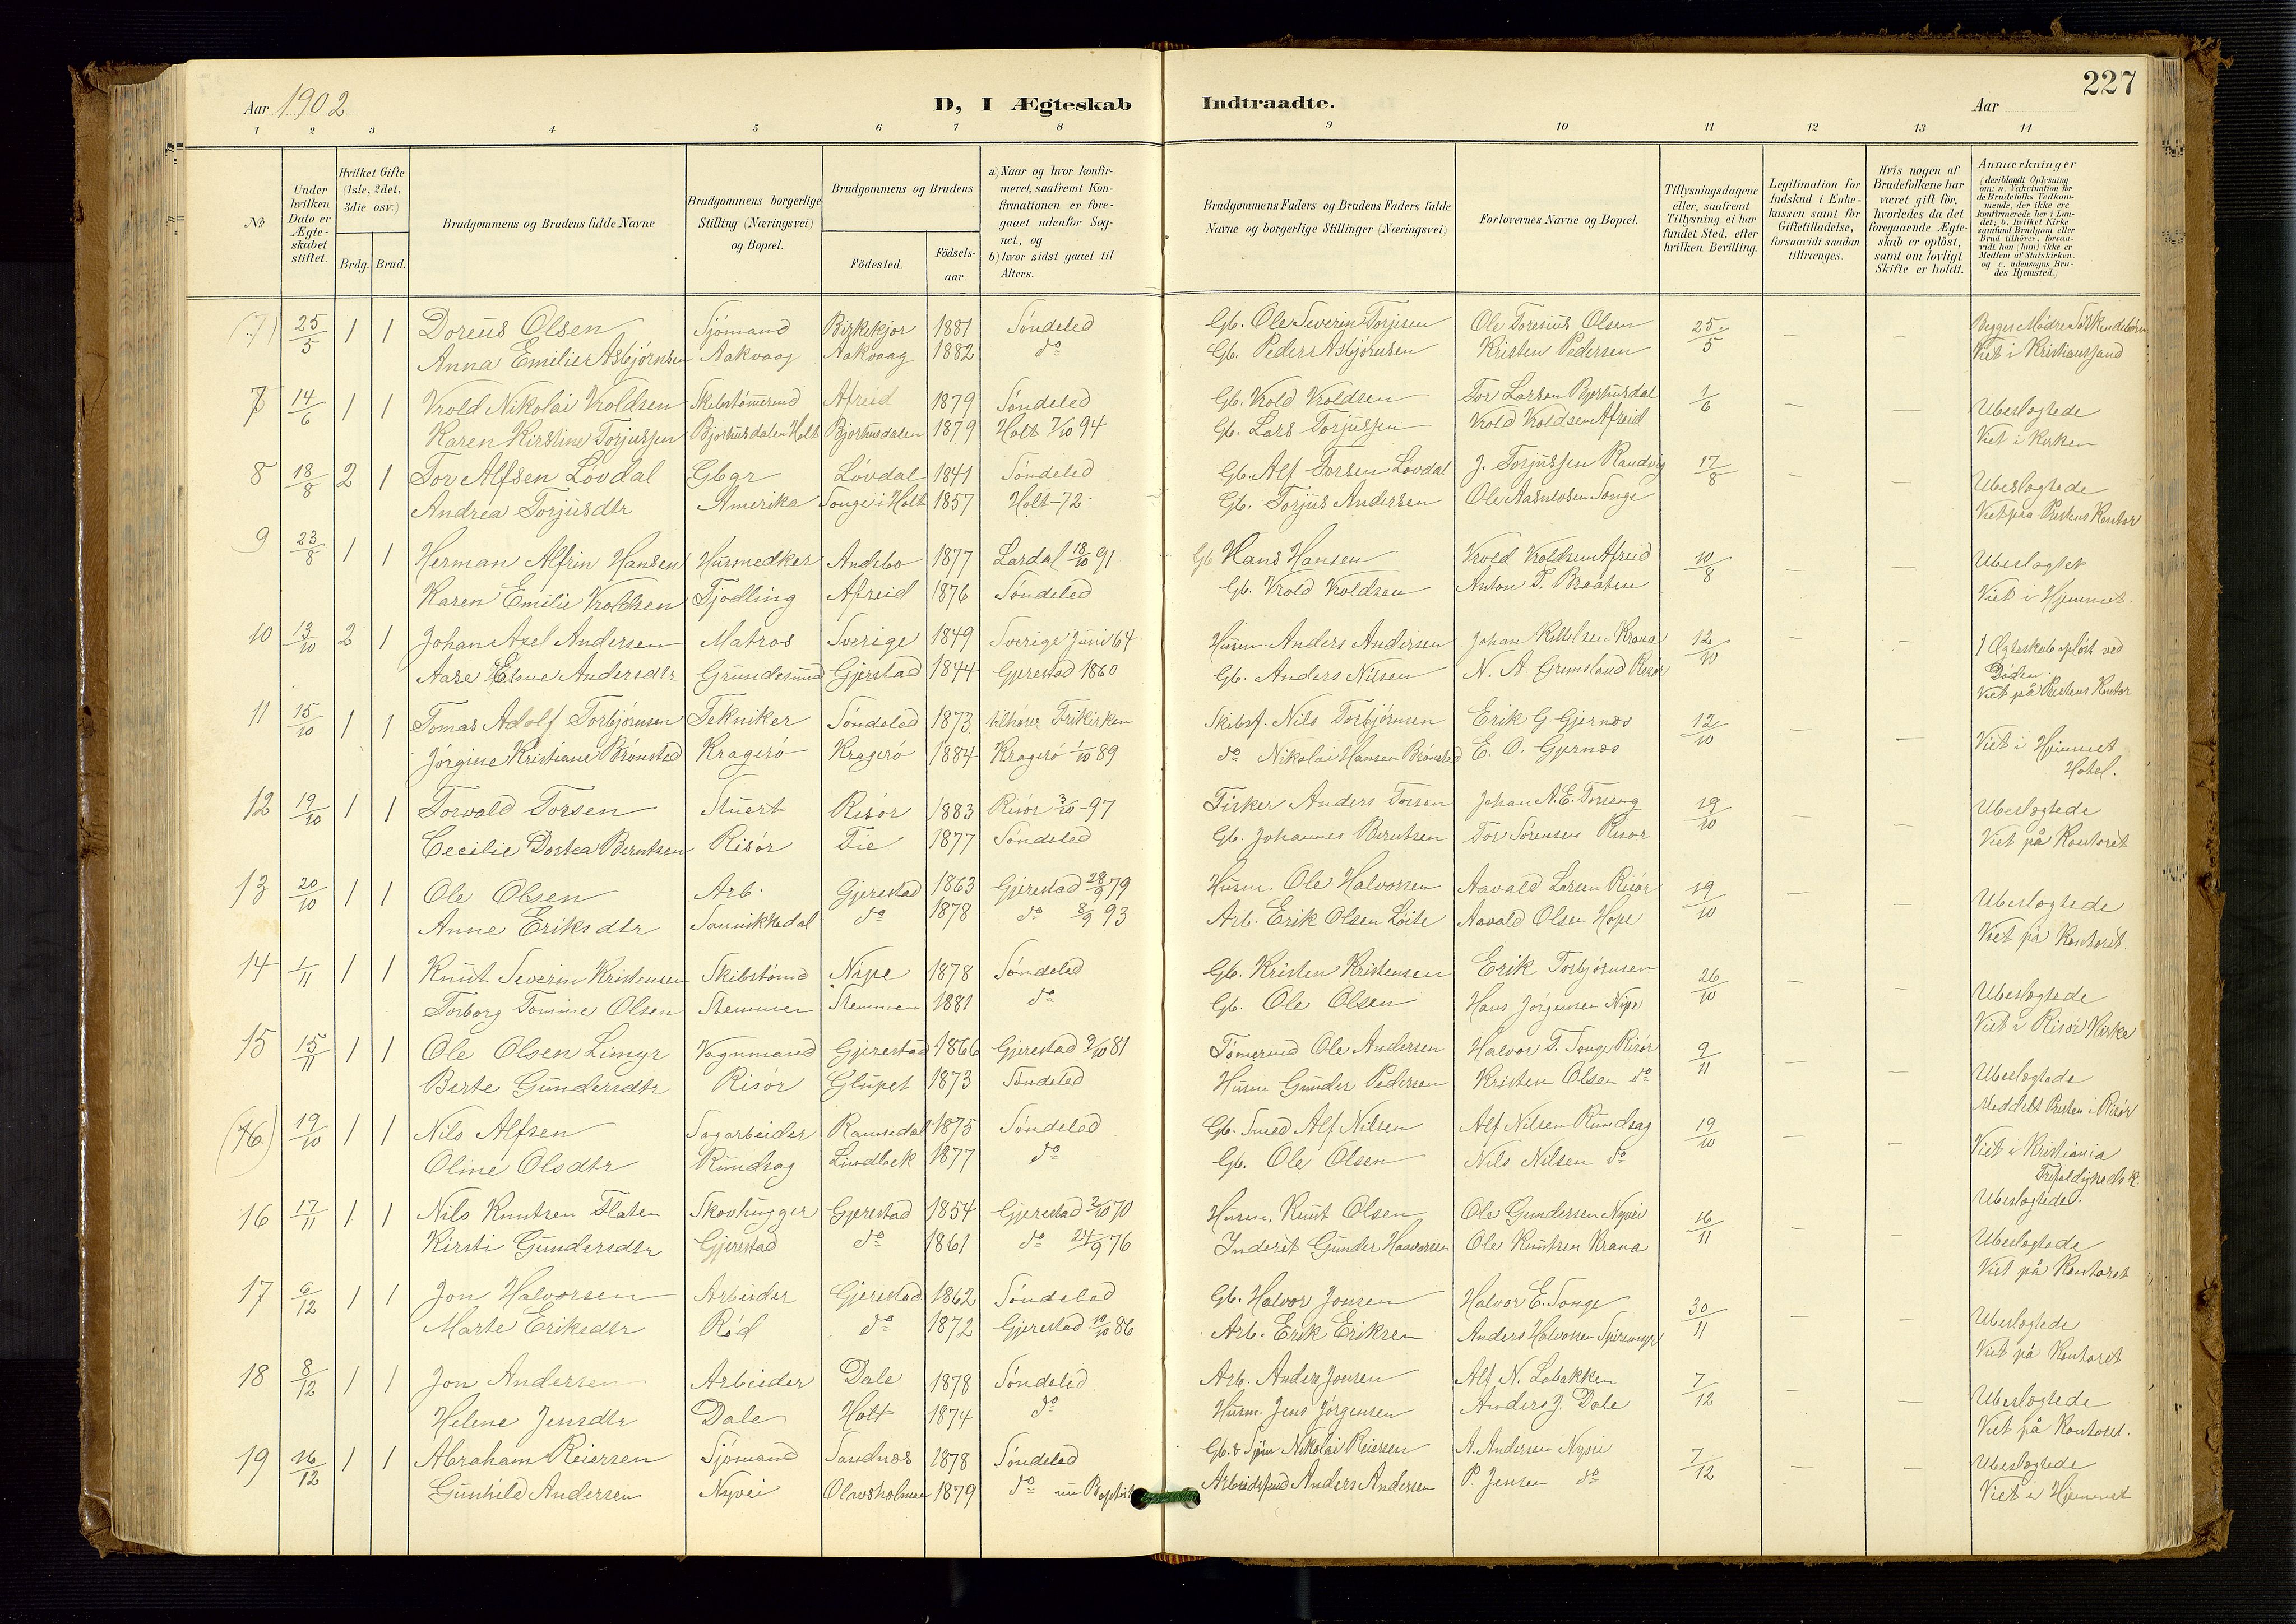 227
Aar 1902
D, I Ægteskab Indtraadte.
Aar
1 2 3 4 5 6 7 8 9 10 11 12 13 14
No
Under hvilken Dato er Ægteskabet stiftet.
Hvilket Gifte (1ste, 2det, 3die osv.)
Brdg. Brud.
Brudgommens og Brudens fulde Navne
Brudgommens borgerlige Stilling (Næringsvei) og Bopæl.
Brudgommens og Brudens
Fødested.
Fødselsaar.
a) Naar og hvor konfirmeret, saafremt Konfirmationen er foregaaet udenfor Sognet, og
b) hvor sidst gaaet til Alters.
Brudgommens Faders og Brudens Faders fulde Navne og borgerlige Stillinger (Næringsvei)
Forlovernes Navne og Bopæl.
Tillysningsdagene eller, saafremt Tillysning ei har fundet Sted, efter hvilken Bevilling.
Legitimation for Indskud i Enkekassen samt for Giftetilladelse, forsaavidt saadan tiltrænges.
Hvis nogen af Brudefolkene har været gift før, hvorledes da det foregaaende Ægteskab er opløst, samt om lovligt Skifte er holdt.
Anmærkninger (deriblandt Oplysning om: a. Vakcination for de Brudefolks Vedkommende, der ikke ere konfirmerede her i Landet; b. hvilket Kirkesamfund Brudgom eller Brud tilhører, forsaavidt han (hun) ikke er Medlem af Statskirken, og c. udensogns Brudes Hjemsted.)
(7) 25/5 1 1 Doreüs Olsen Sjömand Birkekjær 1881 Söndeled Gb. Ole Severin Torjesen Ole Toresius Olsen 25/5 — — Begges Mödre Söskendebörn
Anna Emilie Asbjörnsen Aakvaag Aakvaag 1882 do Gb. Peder Asbjörnsen Kristen Pedersen Viet i Kristianssand
7 14/6 1 1 Vrold Nikolai Vroldsen Skibstömmermd Afreid 1879 Söndeled Gb. Vrold Vroldsen Tor Larsen Bjorhusdal 1/6 — — Ubeslægtede
Karen Kirstine Torjussen Bjorhusdalen Holt Bjorhusdalen 1879 Holt 7/10 94 Gb. Lars Torjussen Vrold Vroldsen Afreid Viet i Kirken
8 18/8 2 1 Tor Alfsen Lövdal Gbgr Lövdal 1841 Söndeled Gb. Alf Torsen Lövdal J. Torjussen Randvig 17/8 — — Ubeslægtede
Andrea Torjusdtr Amerika Songe i Holt 1857 Holt-72 Gb. Torjus Andersen Ole Aasulvsen Songe Viet paa Prestens Kontor
9 23/8 1 1 Herman Alfrin Hansen Husmedker Andebo 1877 Lardal 18/10 91 Gb Hans Hansen Vrold Vroldsen Afreid 10/8 — — Ubeslægtet
Karen Emilie Vroldsen Tjödling Afreid 1876 Söndeled Gb. Vrold Vroldsen Anton P. Braaten Viet i Hjemmet.
10 13/10 2 1 Johan Axel Andersen Matros Sverige 1849 Sverige Juni 64 Husm. Anders Andersen Johan Kittilsen Krana 12/10 — — 1 Ægteskab oplöst ved Döden
Aase Elene Andersdtr Grundesund Gjerstad 1844 Gjerestad 1860 Gb. Anders Nilsen N. A. Grumsland Risör Viet på Prestens Kontor
11 15/10 1 1 Tomas Adolf Torbjörnsen Tekniker Söndeled 1873 tilhörer Frikirken Skibsf. Nils Torbjörnsen Erik G. Gjernæs 12/10 — —
Jörgine Kristiane Brönsted Kragerö Kragerö 1884 Kragerö 1/10 89 do Nikolai Hansen Brönsted E. O. Gjernæs Viet i Hjemmet Hotel.
12 19/10 1 1 Torvald Torsen Stuert Risör 1883 Risör 3/10-97 Fisker Anders Torsen Johan A. E. Torsen 19/10 — — Ubeslægtede
Cecilie Dortea Berntsen Risör Fie 1877 Söndeled Gb. Johannes Berntsen Tor Sörensen Risör Viet på Kontoret
13 20/10 1 1 Ole Olsen Arb. Gjerestad 1863 Gjerestad 28/9 79 Husm. Ole Halvorsen Aavald Larsen Risör 19/10 — — Ubeslægtede
Anne Eriksdtr Sannikkedal do 1878 do 8/9 93 Arb. Erik Olsen Löite Aavald Olsen Hope Viet på Kontoret.
14 1/11 1 1 Knut Severin Kristensen Skibstömd Nipe 1878 Söndeled Gb. Kristen Kristensen Erik Torbjörnsen 26/10 — — Ubeslægtede
Torborg Tomine Olsen Stemmen Stemmen 1881 do Gb. Ole Olsen Hans Jörgensen Nipe Viet i Risör Kirke
15 15/11 1 1 Ole Olsen Limyr Vognmand Gjerestad 1866 Gjerestad 2/10 81 Tömermd Ole Andersen Halvor T. Songe Risör 9/11 — — Ubeslægtede
Berte Gundersdtr Risör Glupet 1873 Söndeled Husm Gunder Pedersen Kristen Olsen do Meddelt Presten i Risör
(16) 19/10 1 1 Nils Alfsen Sagarbeider Ramsedal 1875 Söndeled Gb. Smed Alf Nilsen Alf Nilsen Rundsag 19/10 — — Viet i Kristiania
Oline Olsdtr Rundsag Lindbek 1877 do Gb. Ole Olsen Nils Nilsen do Trefoldigheds k. Ubeslægtede.
16 17/11 1 1 Nils Knutsen Flaten Skovhugger Gjerestad 1854 Gjerestad 2/10 70 Husm. Knut Olsen Ole Gundersen Nyvei 16/11 — — Ubeslægtede
Kirsti Gundersdtr Gjerestad do 1861 do 24/9 76 Inderst Gunder Haavorsen Ole Knutsen Krana Viet på Kontoret
17 6/12 1 1 Jon Halvorsen Arbeider Gjerestad 1862 Söndeled Gb. Halvor Jonsen Halvor E. Songe 30/11 — — Ubeslægtede
Marte Eriksdtr Röd do 1872 Gjerestad 10/10 86 Arb. Erik Eriksen Anders Halvorsen Viet på Kontoret
18 8/12 1 1 Jon Andersen Arbeider Dale 1878 Söndeled Arb. Anders Jonsen Alf N. Labakken 7/12 — — Ubeslægtede
Helene Jensdtr Dale Holt 1874 do Husm. Jens Jörgensen Anders J. Dale Viet på Kontoret.
19 16/12 1 1 Abraham Reiersen Sjömand Sandnæs 1878 Söndeled Gb. & Sjöm Nikolai Reiersen A. Andersen Nyvei 7/12 — — Ubeslægtede
Gunhild Andersen Nyvei Olavsholmen 1879 do nu Baptist Arbeidsfmd Anders Andersen P. Jensen do Viet i Hjemmet